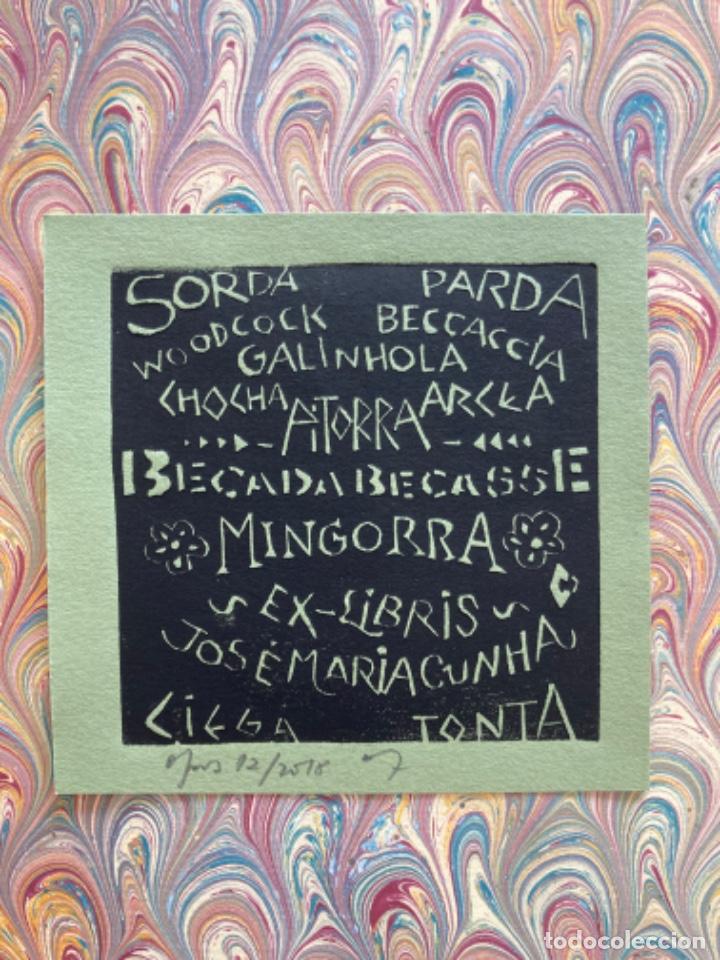 SORDA PARDA
WOODCOCK BECCACCIA
GALINHOLA
CHOCHA PITORRA ARCEA
BECADA BECASSE
MINGORRA
EX-LIBRIS
JOSÉ MARIA CUNHA
CIEGA TONTA
Opus 12/2018
todocoleccion
todocoleccion.net